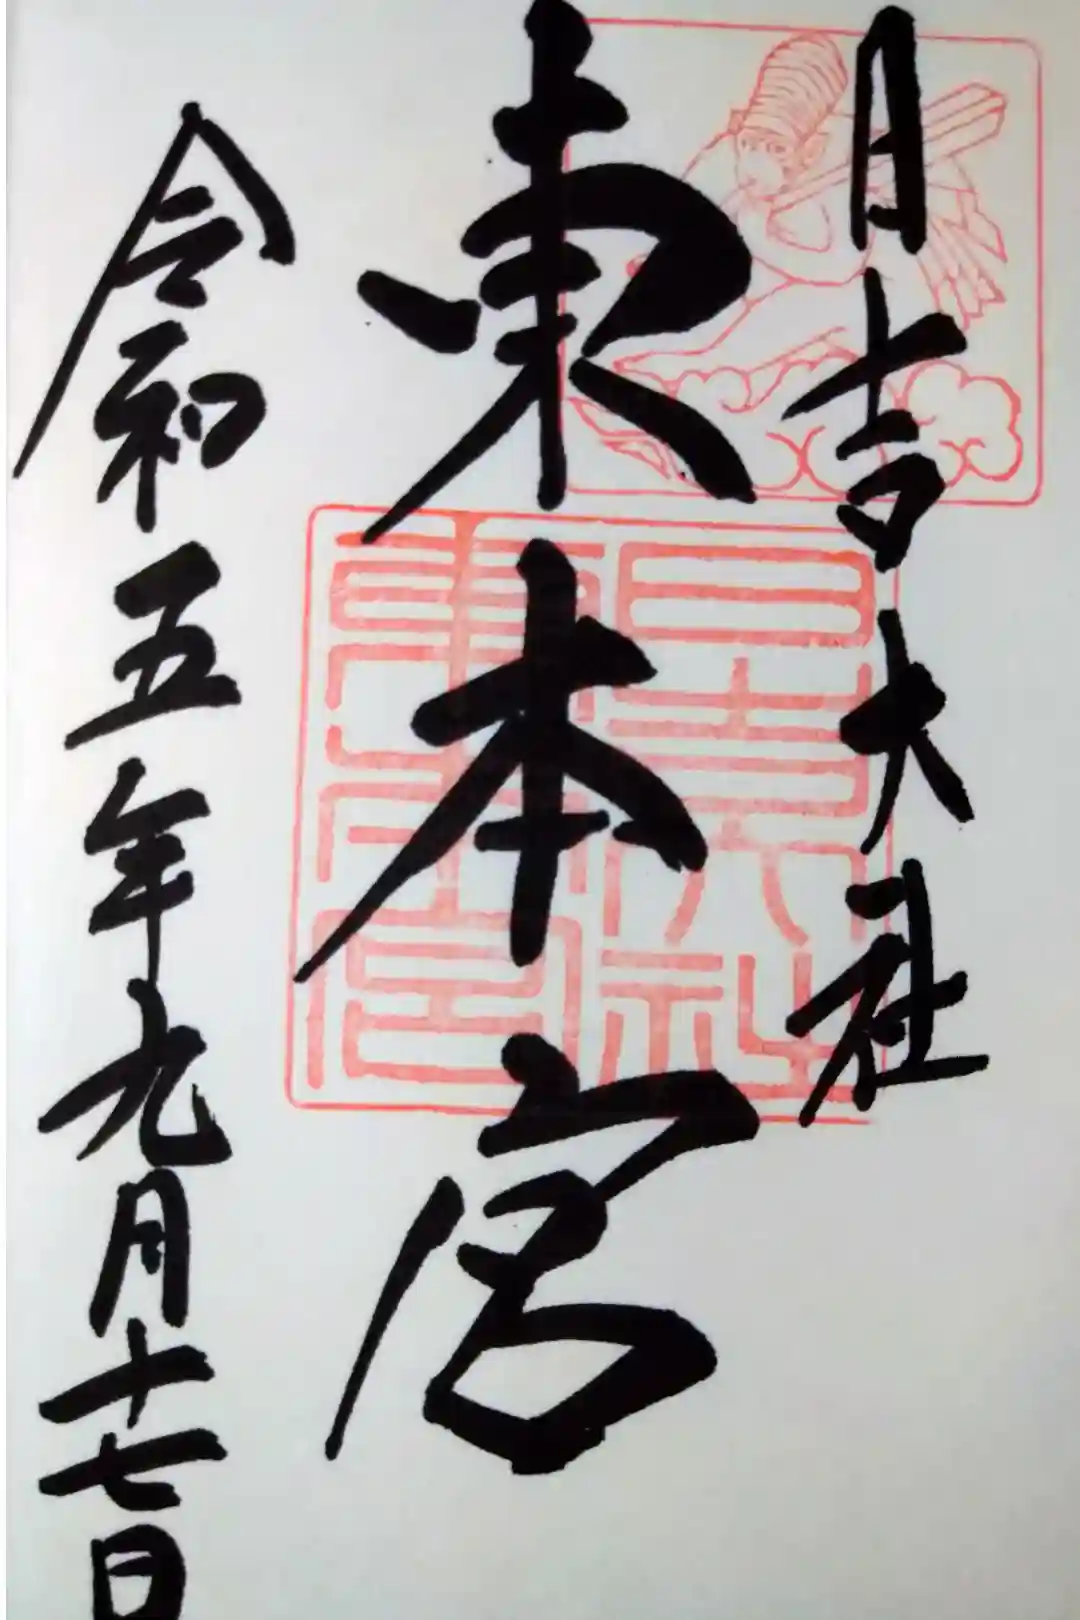 日吉大社
東本宮
令和五年九月十七日
日吉大社
東本宮